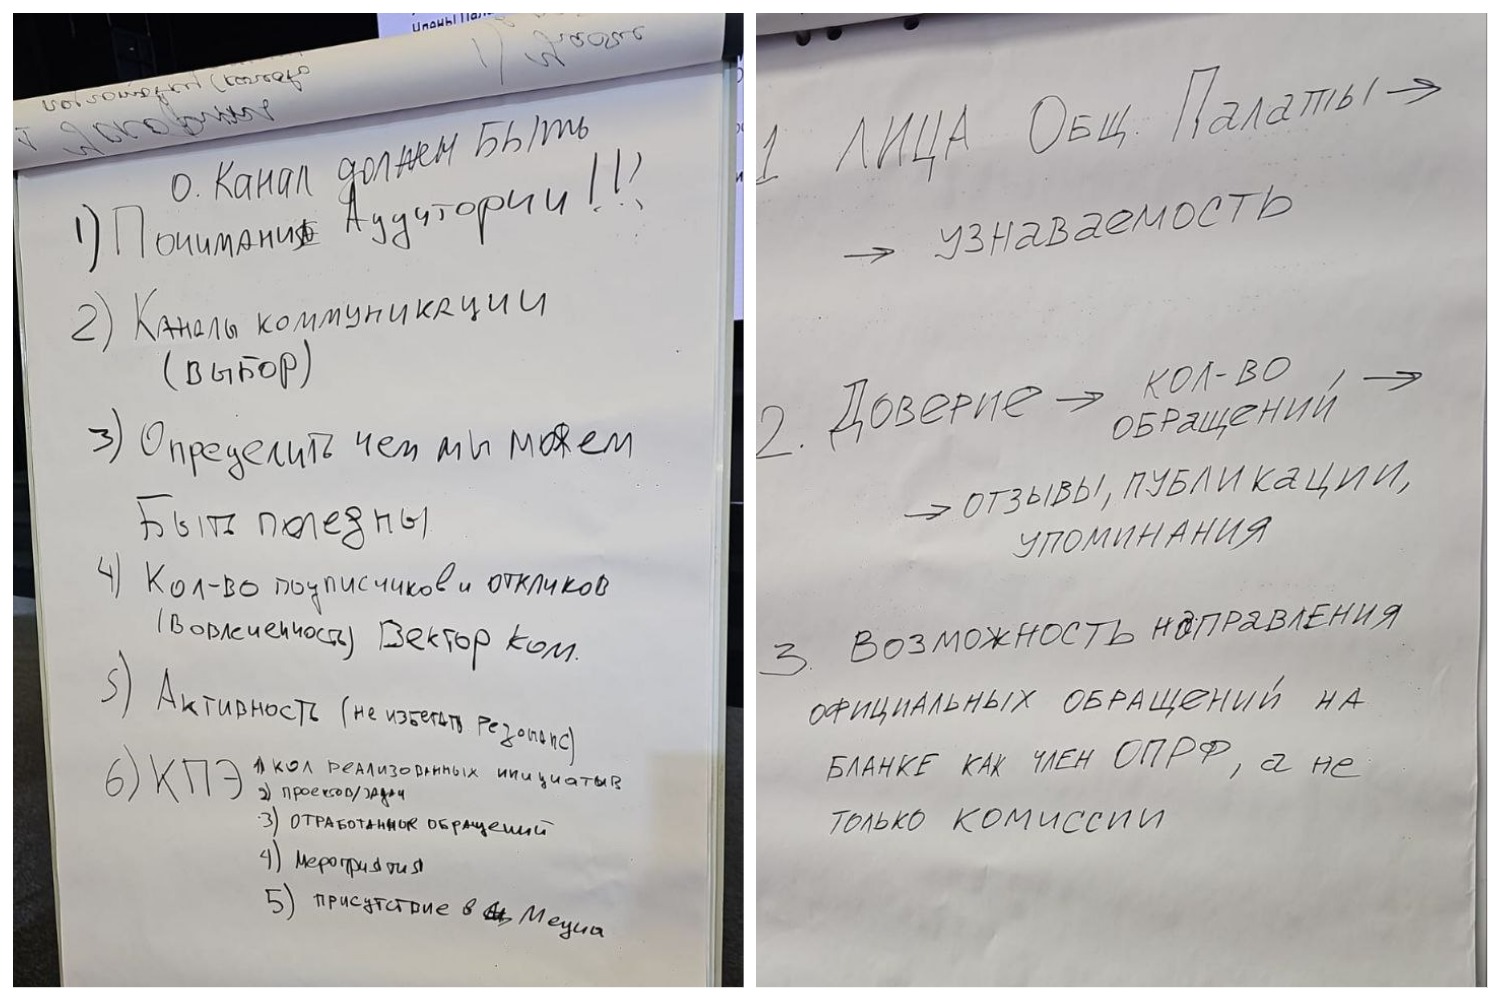 Члены Пала
1)
0. Канал должен быть
1) Понимание Аудитории!!!
2) Каналы коммуникации
(выбор)
3) Определить чем мы можем
Быть полезны
4) Кол-во подписчиков и откликов
(Вовлеченность) Вектор ком.
5) Активность (не избегать резонанс)
6) КПЭ 1) кол реализованных инициатив
2) проектов/задач
3) отработанные обращений
4) Мероприятия
5) присутствие в Медиа
1 ЛИЦА Общ. Палаты →
→ узнаваемость
2. Доверие → кол-во
обращений, →
→ отзывы, публикации,
упоминания
3. Возможность направления
официальных обращений на
бланке как член ОПРФ, а не
только комиссии